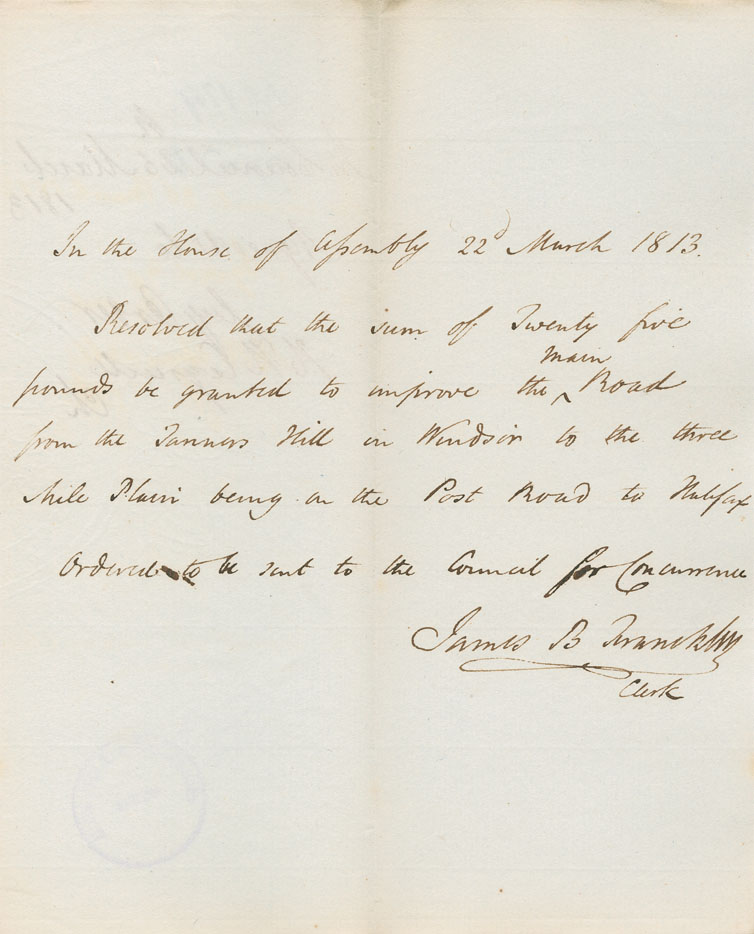 In the House of Assembly 22d March 1813.
Resolved that the sum of Twenty five
main
pounds be granted to improve the ‸ Road
from the Tanners Hill in Windsor to the three
Mile Plain being on the Post Road to Halifax
Ordered to be sent to the Council for Concurrence
James B Francklin
Clerk